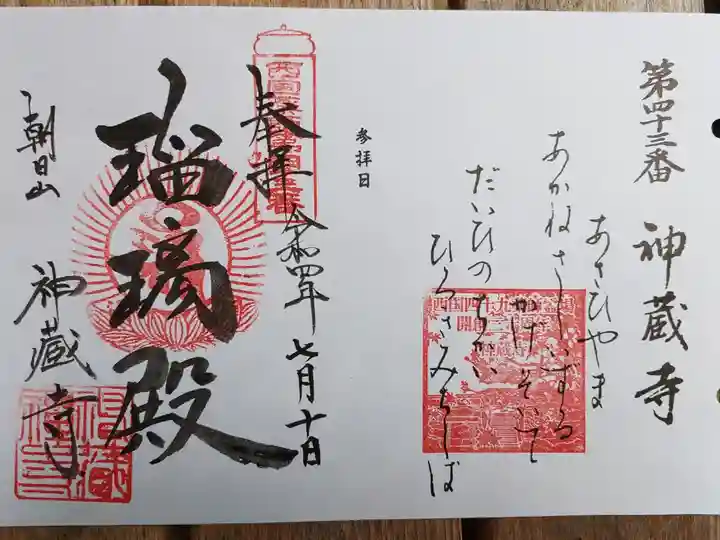 第四十三番 神蔵寺
あさひやま
あかねさしいずる
かげにそいて
だいひのちかい
ひろさみちしば
参拝日
奉拝 令和四年 七月十日
瑠璃殿
朝日山 神蔵寺